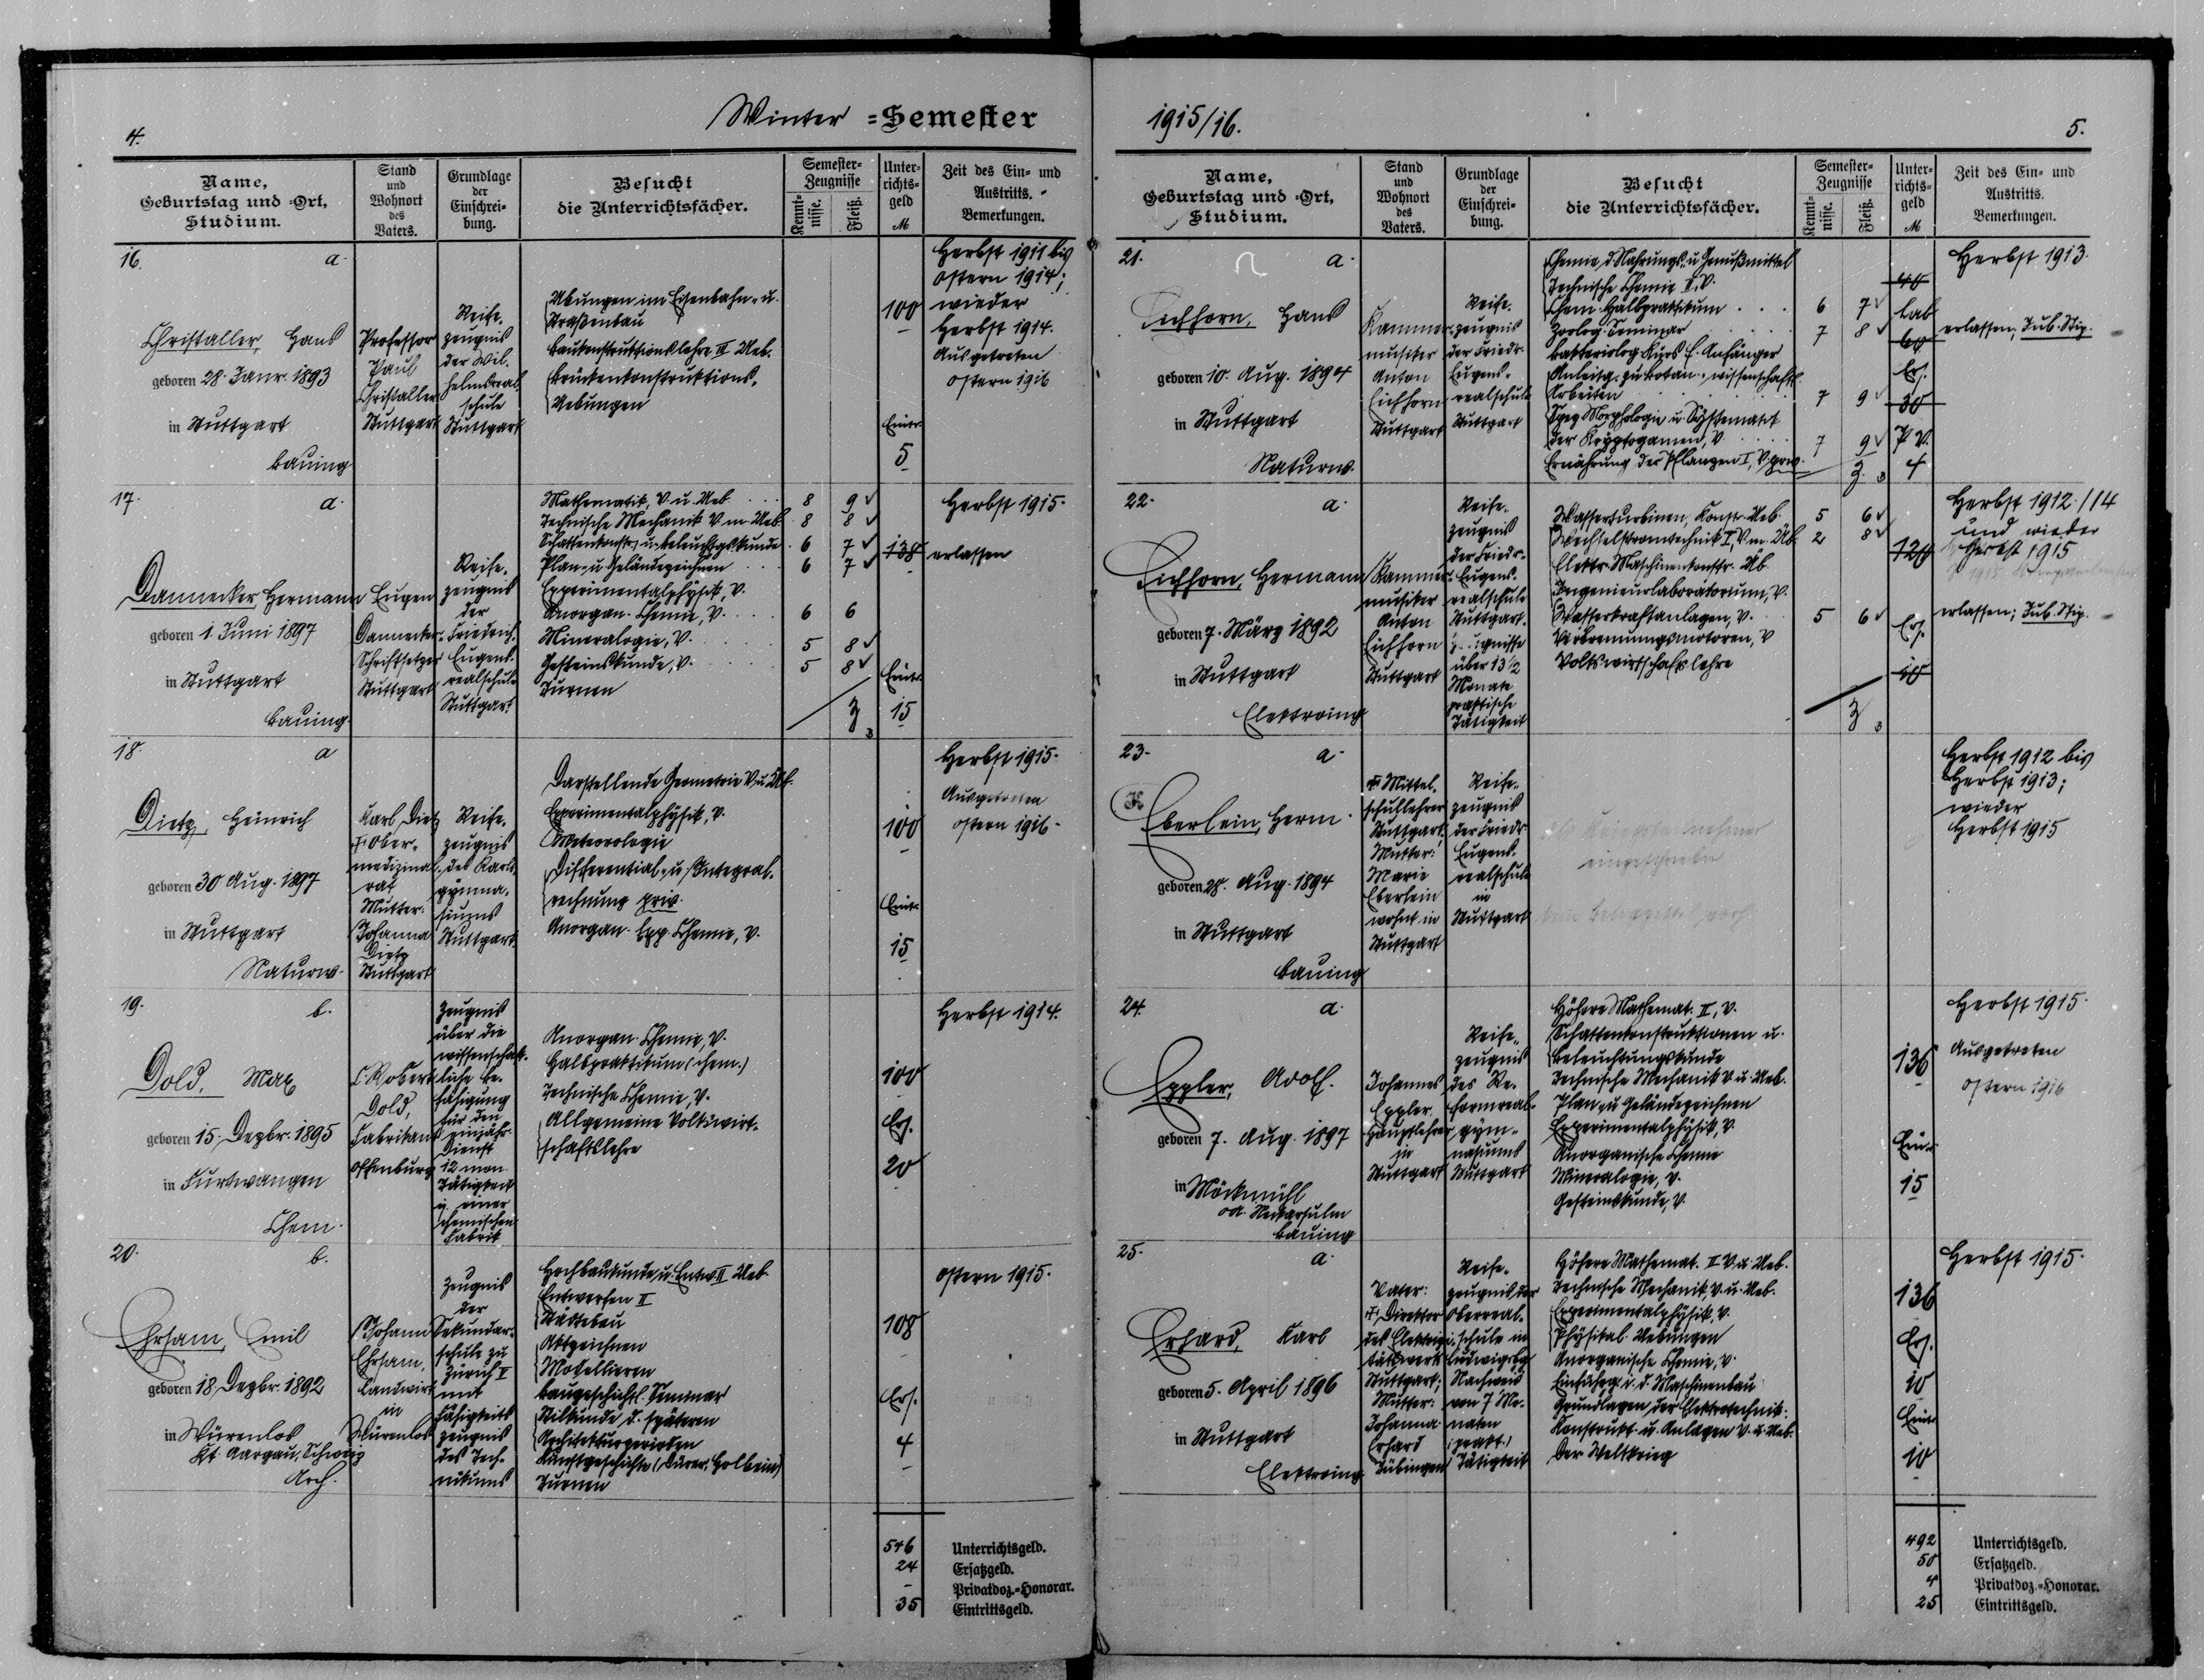 4.
Winter =Semester
Name,
Geburtstag und =Ort,
Studium.
Stand
und
Wohnort
des
Vaters.
Grundlage
der
Einschrei=
bung.
Besucht
die Unterrichtsfächer.
Semester=
Zeugnisse
Kennt=
nisse.
Fleiß.
Unter=
richts=
geld
M
Zeit des Ein= und
Austritts.
Bemerkungen.
16. a.
Christaller, Hans
geboren 28. Janr. 1893
in Stuttgart
Bauing.
Professor
Paul
Christaller
Stuttgart
Reife-
zeugnis
der Wil-
helmsreal
schule
Stuttgart
Übungen im Eisenbahn- u.
Straßenbau
Baukonstruktionslehre III Ueb.
Brückenkonstruktions-
Uebungen
100
Eintr.
5
Herbst 1911 bis
Ostern 1914;
wieder
Herbst 1914.
Ausgetreten
Ostern 1916
17. a.
Dannecker, Hermann
geboren 1. Juni 1897
in Stuttgart
Bauing.
Eugen
Dannecker
Schriftsetzer
Stuttgart
Reife-
zeugnis
der
Friedrich-
Eugens-
realschule
Stuttgart
Mathematik, V. u. Ueb. 8 9
Technische Mechanik V. m. Ueb. 8 8
Schattenkonstr. u. Beleuchtgskunde 6 7
Plan- u. Geländezeichnen 6 7
Experimentalphysik, V.
Anorgan. Chemie, V. 6 6
Mineralogie, V. 5 8
Gesteinskunde, V. 5 8
Turnen
138
Eintr.
15
Herbst 1915.
erlassen
18. a
Dietz, Heinrich
geboren 30 Aug. 1897
in Stuttgart
Naturw.
Karl Dietz
† Ober-
medizinal-
rat
Mutter:
Johanna
Dietz
Stuttgart
Reife-
zeugnis
des Karls-
gymna-
siums
Stuttgart
Darstellende Geometrie V. u. Üb.
Experimentalphysik, V.
Meteorologie
Differential- u. Integral-
rechnung priv.
Anorgan. Exp. Chemie, V.
100
Eintr.
15
Herbst 1915.
Ausgetreten
Ostern 1916.
19. b.
Dold, Max
geboren 15. Dezbr. 1895
in Furtwangen
Chem.
Robert
Dold,
Fabrikant
Offenburg
Zeugnis
über die
wissenschaft-
liche Be-
fähigung
für den
einjähr.
Dienst
12 mon.
Tätigkeit
i. einer
chemischen
Fabrik
Anorgan. Chemie, V.
Halbpraktikum (chem.)
Technische Chemie, V.
Allgemeine Volkswirt-
schaftslehre
100
Ers.
20
Herbst 1914.
20. b.
Ehrsam, Emil
geboren 18. Dezbr. 1892
in Würenlos
Kt. Aargau, Schweiz
Arch.
Johann
Ehrsam,
Landwirt
in
Würenlos
Zeugnis
der
Sekundar-
schule zu
Zürich V
und
Fähigkeits
zeugnis
des Tech-
nikums
Hochbaukunde u. Entw. II Ueb.
Entwerfen II
Städtebau
Aktzeichnen
Modellieren
Baugeschichtl. Seminar
Stilkunde d. späteren
Architekturperioden
Kunstgeschichte (Dürer, Holbein)
Turnen
108
Ers.
4
Ostern 1915.
546 Unterrichtsgeld.
24 Ersatzgeld.
- Privatdoz.=Honorar.
35 Eintrittsgeld.
1915/16.
5.
Name,
Geburtstag und =Ort,
Studium.
Stand
und
Wohnort
des
Vaters.
Grundlage
der
Einschrei=
bung.
Besucht
die Unterrichtsfächer.
Semester=
Zeugnisse
Kennt=
nisse.
Fleiß.
Unter=
richts=
geld
M
Zeit des Ein= und
Austritts.
Bemerkungen.
21. a.
Eichhorn, Hans
geboren 10. Aug. 1894
in Stuttgart
Naturw.
Kammer-
musiker
Anton
Eichhorn
Stuttgart
Reife-
zeugnis
der Friedr.
Eugens-
realschule
Stuttgart
Chemie d. Nahrungs- u. Genußmittel
Technische Chemie II, V.
Chem. Halbpraktikum 6 7
Zoolog. Seminar 7 8
Bakteriolog. Kurs f. Anfänger
Anleitg. zu botan. wissenschaftl.
Arbeiten 7 9
Spez. Morphologie u. Systematik
der Kryptogamen, V. 7 9
Ernährung der Pflanzen I, V. priv.
40
Lab
60
Ers.
30
P. V.
4
Herbst 1913.
erlassen, Jub. Stip.
22. a.
Eichhorn, Hermann
geboren 7. März 1892
in Stuttgart
Elektroing.
Kammer-
musiker
Anton
Eichhorn
Stuttgart
Reife-
zeugnis
der Friedr.
Eugens-
realschule
Stuttgart.
über 13 1/2
Monate
praktische
Tätigkeit
Wasserturbinen, Konstr. Ueb. 5 6
Wechselstromtechnik I, V. m. Üb. 2 8
Elektr. Maschinenkonstr. Üb.
Ingenieurlaboratorium, V.
Wasserkraftanlagen, V. 5 6
Verbrennungsmotoren, V
Volkswirtschaftslehre
120
Ers.
10
Herbst 1912/14
und wieder
Herbst 1915
erlassen; Jub. Stip.
23. a.
K
Eberlein, Herm.
geboren 28. Aug. 1894
in Stuttgart
Bauing.
† Mittel-
schullehrer
Stuttgart.
Mutter:
Marie
Eberlein
wohnt in
Stuttgart
Reife-
zeugnis
der Friedr.
Eugens-
realschule
in
Stuttgart
als Kriegsteilnehmer
eingeschrieben
Herbst 1912 bis
Herbst 1913;
wieder
Herbst 1915
24. a.
Eppler, Adolf.
geboren 7. Aug. 1897
in Möckmühl
OA. Neckarsulm
Bauing
Johannes
Eppler
Hauptlehrer
in
Stuttgart
Reife-
zeugnis
des Re-
formreal-
gym-
nasiums
Stuttgart
Höhere Mathemat. II, V.
Schattenkonstruktionen u.
Beleuchtungskunde
Technische Mechanik V. u. Ueb.
Plan- u. Geländezeichnen
Experimentalphysik, V.
Anorganische Chemie
Mineralogie, V.
Gesteinskunde, V.
136
Eintr.
15
Herbst 1915.
Ausgetreten
Ostern 1916
25. a.
Erhard, Karl
geboren 5. April 1896
in Stuttgart
Elektroing.
Vater:
† Direktor
des Elektrizi-
tätswerk
Stuttgart;
Mutter:
Johanna
Erhard
Tübingen
Reife-
zeugnis der
Oberreal-
schule in
Ludwigsbg
Nachweis
von 7 Mo-
naten
prakt.
Tätigkeit
Höhere Mathemat. II V. u. Ueb.
Technische Mechanik, V. u. Ueb.
Experimentalphysik, V.
Physikal. Uebungen
Anorganische Chemie, V.
Einführg. i. d. Maschinenbau
Grundlagen der Elektrotechnik.
Konstrukt. u. Anlagen V. u. Ueb.
Der Weltkrieg
136
Ers.
10
Eintr.
10
Herbst 1915.
492 Unterrichtsgeld.
50 Ersatzgeld.
4 Privatdoz.=Honorar.
25 Eintrittsgeld.